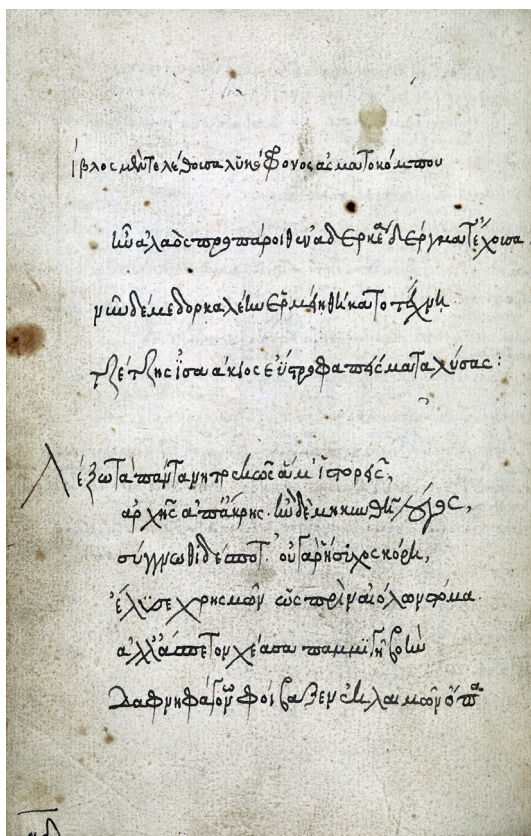 ίβλος μὲν τελέθουσα λυκόφρονος ἀσματοκόμπου
ἦν ἀλαὸς προπάροιθεν ἀδερκέα δέργματ' ἔχουσα
νῦν δέ με δορκαλέην ἑρμείη θήκατο τέχνη
τζέτζης ἰσαάκιος εὔστροφα πείσματα λύσας:
Λέξω τὰ πάντα νητρεκῶς ἅ μ' ἱστορεῖς,
ἀρχῆς ἀπ' ἄκρης. ἢν δὲ μηκυνθῇ λόγος,
σύγγνωθι δέσποτ'. οὐ γὰρ ἥσυχος κόρη,
ἔλυσε χρησμῶν ὡς πρὶν αἰόλον στόμα.
ἀλλ' ἄσπετον χέασα παμμιγῆ βοὴν
Δαφνηφάγων φοίβαζεν ἐκ λαιμῶν ὄπα.